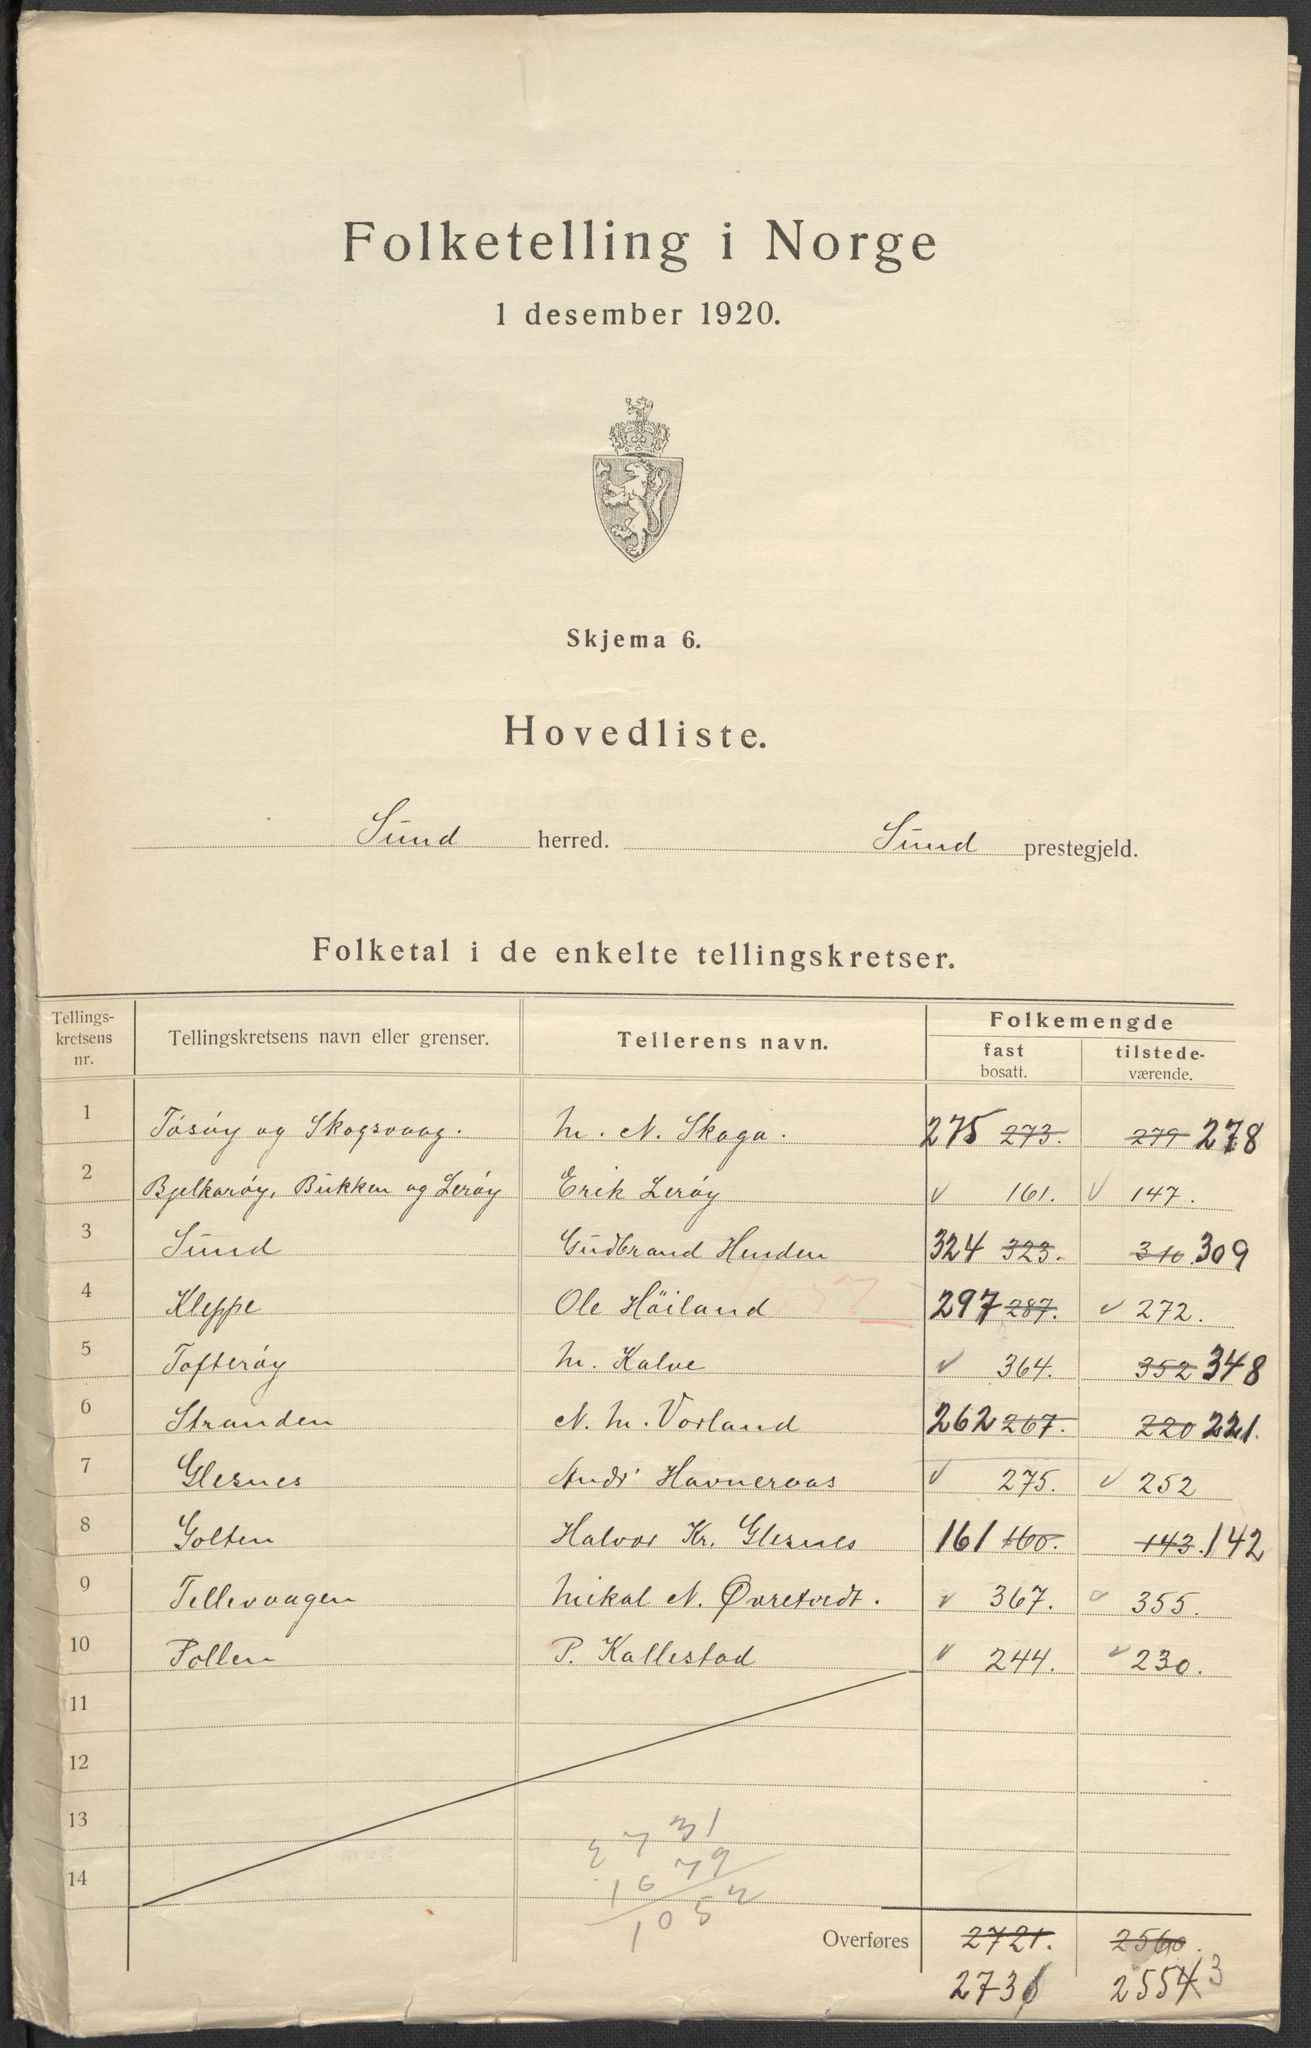 Folketelling i Norge
1 desember 1920.
Skjema 6.
Hovedliste.
Sund herred. Sund prestegjeld.
Folketal i de enkelte tellingskretser.
Tellings-kretsens nr. Tellingskretsens navn eller grenser. Tellerens navn. Folkemengde
fast bosatt. tilstede-værende.
1 Tösöy og Skogsvaag. M. N. Skoga. 275 273. 279 278
2 Bjelkaröy, Bukken og Leröy Erik Leröy √ 161. √ 147.
3 Sund Gudbrand Henden 324 323. 310. 309
4 Kleppe Ole Höiland 297 287. √ 272.
5 Tofteröy M. Kalve √ 364. 352 348
6 Stranden N. M. Vorland 262 267. 220 221.
7 Glesnes Andr Havnevaas √ 275. √ 252
8 Golten Halvor Kr. Glesnes 161 160. 143. 142
9 Tellevaagen Mikal N. Øvretvedt. √ 367. √ 355.
10 Pollen P. Kallestad √ 244. √ 230.
11
12
13
14
2731
1679
1052
Overføres 2721. 2560.
2730 2554 3